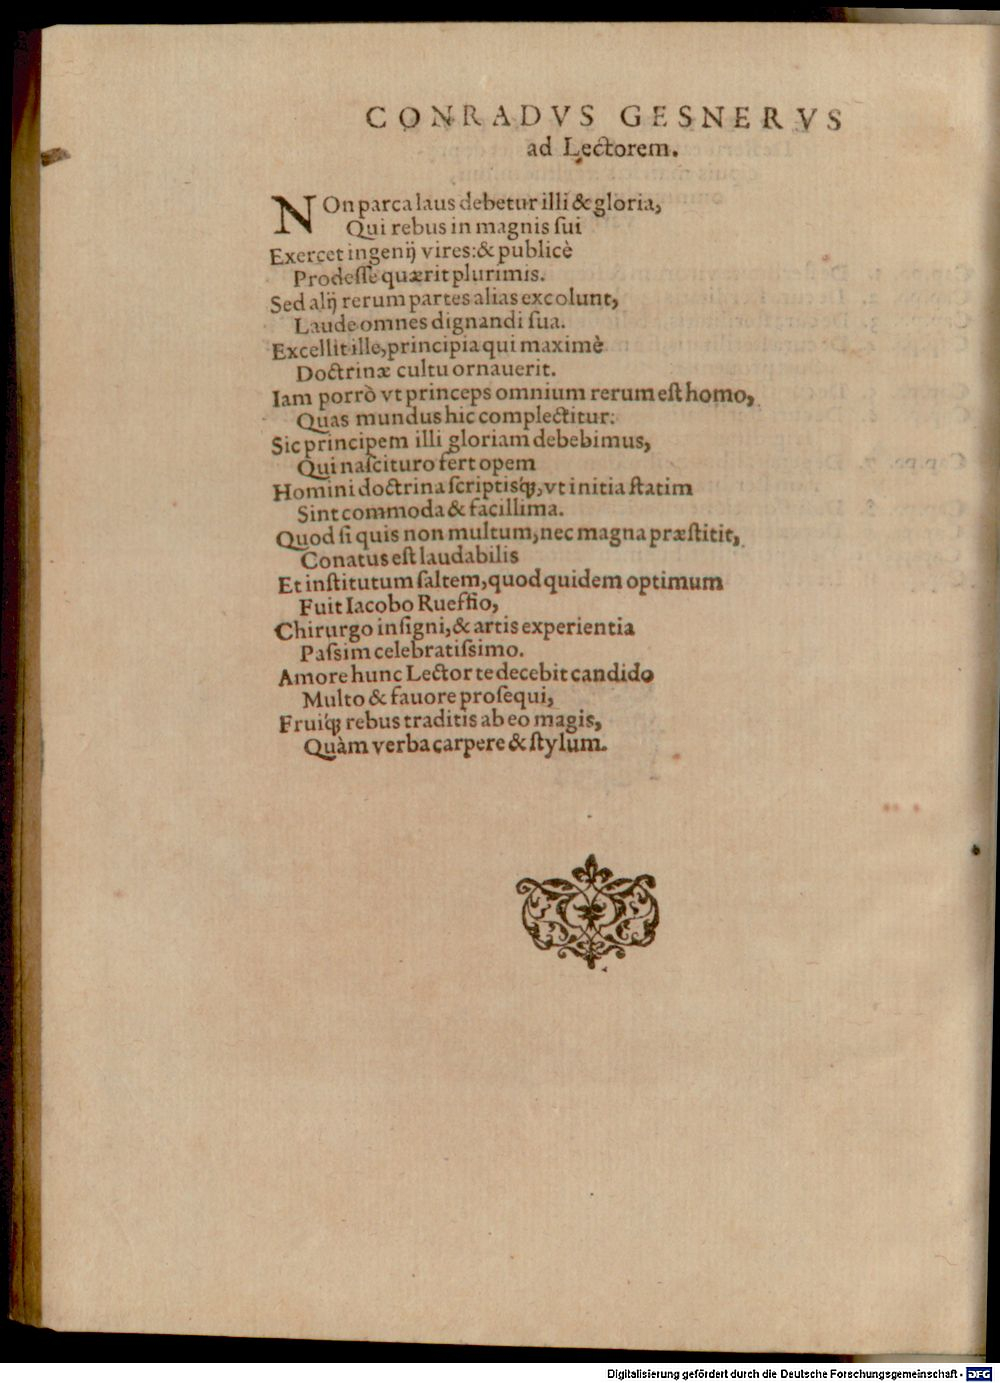 CONRADVS GESNERVS
ad Lectorem.
NOn parca laus debetur illi & gloria,
Qui rebus in magnis ſui
Exercet ingenij vires: & publicè
Prodeſſe quærit plurimis.
Sed alij rerum partes alias excolunt,
Laude omnes dignandi ſua.
Excellit ille, principia qui maximè
Doctrinæ cultu ornauerit.
Iam porrò vt princeps omnium rerum eſt homo,
Quas mundus hic complectitur:
Sic principem illi gloriam debebimus,
Qui naſcituro fert opem
Homini doctrina ſcriptiśq;, vt initia ſtatim
Sint commoda & facillima.
Quod ſi quis non multum, nec magna præſtitit,
Conatus eſt laudabilis
Et inſtitutum ſaltem, quod quidem optimum
Fuit Iacobo Rueffio,
Chirurgo inſigni, & artis experientia
Paſsim celebratiſsimo.
Amore hunc Lector te decebit candido
Multo & fauore proſequi,
Fruiq́; rebus traditis ab eo magis,
Quàm verba carpere & ſtylum.
Digitalisierung gefördert durch die Deutsche Forschungsgemeinschaft - DFG